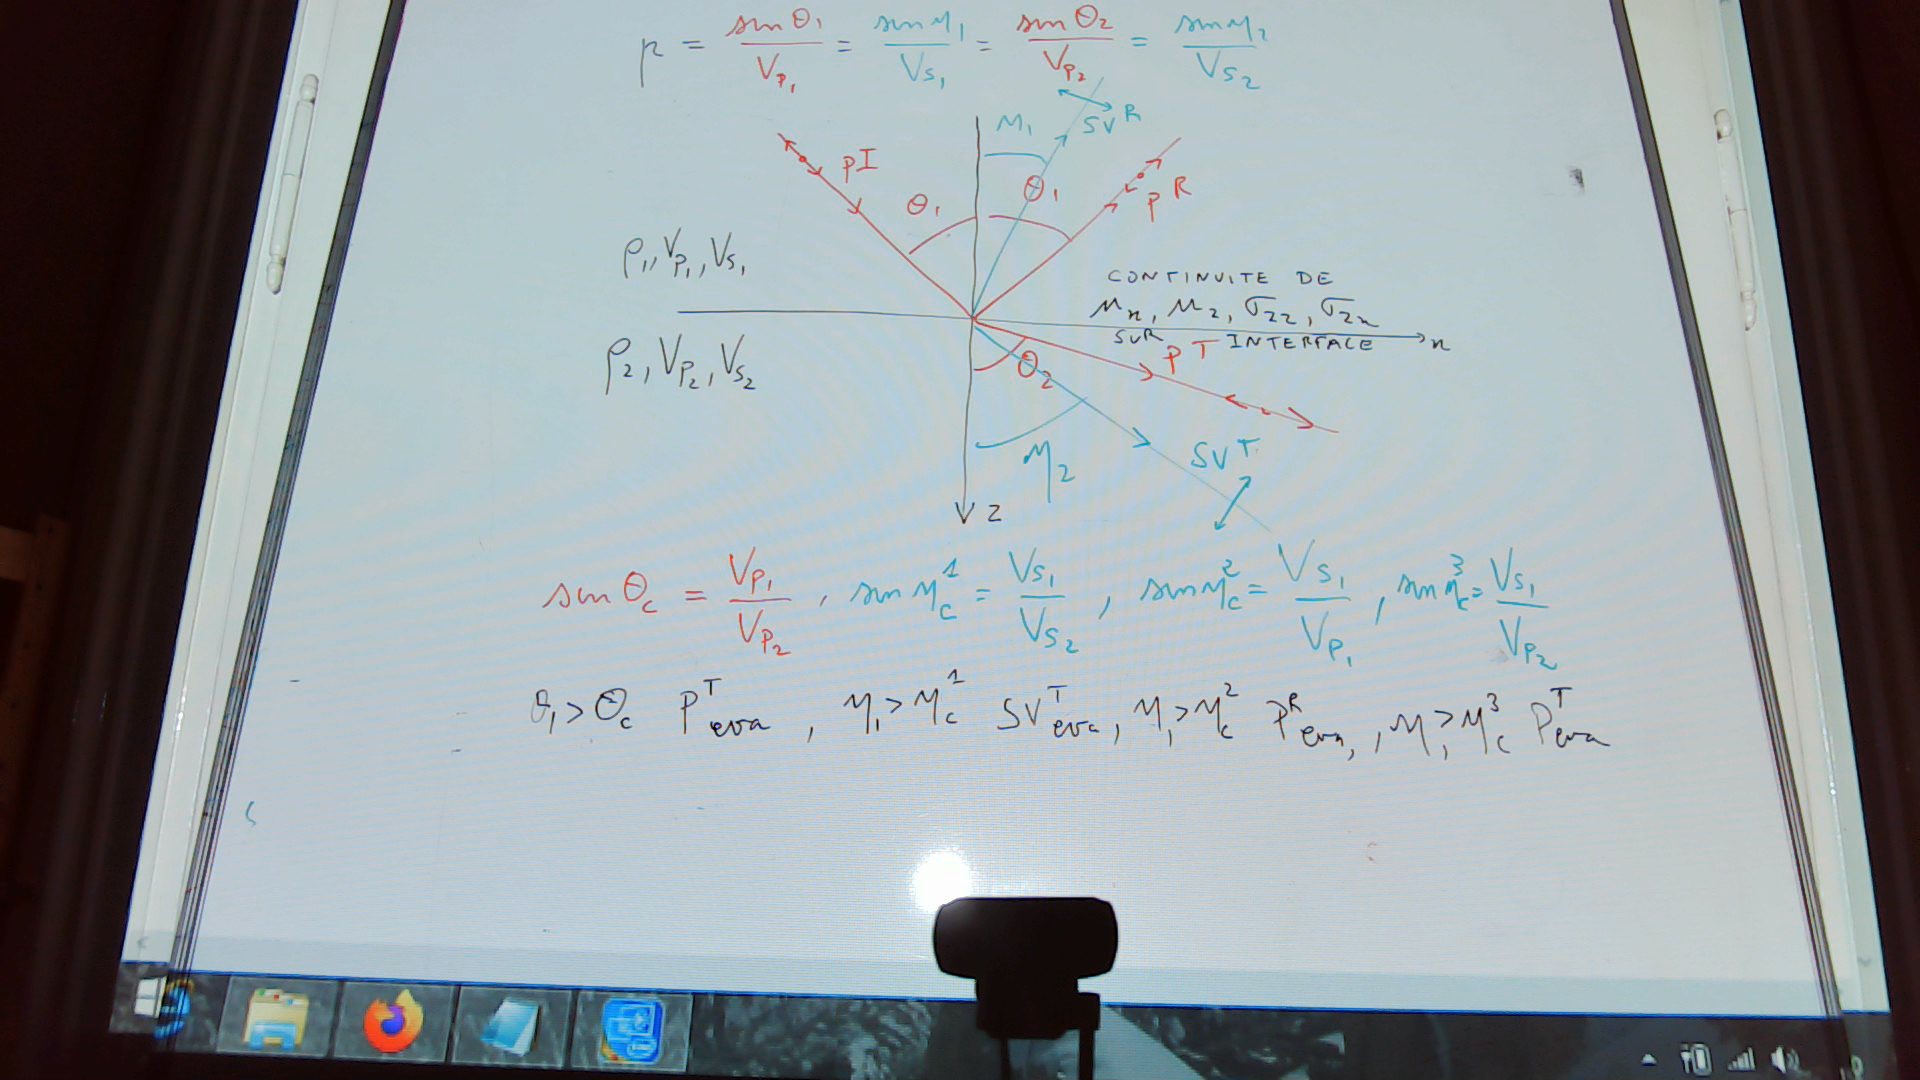 p = sin θ₁ / V_P₁ = sin η₁ / V_S₁ = sin θ₂ / V_P₂ = sin η₂ / V_S₂
η₁ SV^R
P^I
θ₁ θ₁ P^R
ρ₁, V_P₁, V_S₁
CONTINUITE DE
u_x, u_z, σ_zz, σ_zx
SUR INTERFACE x
ρ₂, V_P₂, V_S₂
θ₂ P^T
η₂ SV^T
z
sin θ_c = V_P₁ / V_P₂ , sin η_c^1 = V_S₁ / V_S₂ , sin η_c^2 = V_S₁ / V_P₁ , sin η_c^3 = V_S₁ / V_P₂
θ₁ > θ_c P^T_eva , η₁ > η_c^1 SV^T_eva , η₁ > η_c^2 P^R_eva , , η₁ > η_c^3 P^T_eva